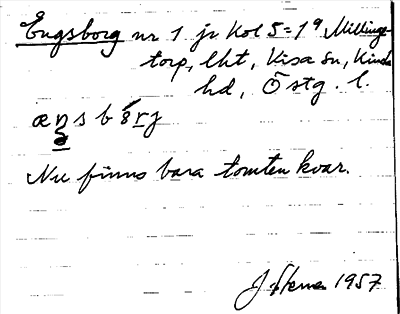 Engsborg nr 1 jr Kol 5=19 Millinge-
torp, lht, Kisa sn, Kinda
hd, Östg. l.
Nu finns bara tomten kvar.
1957